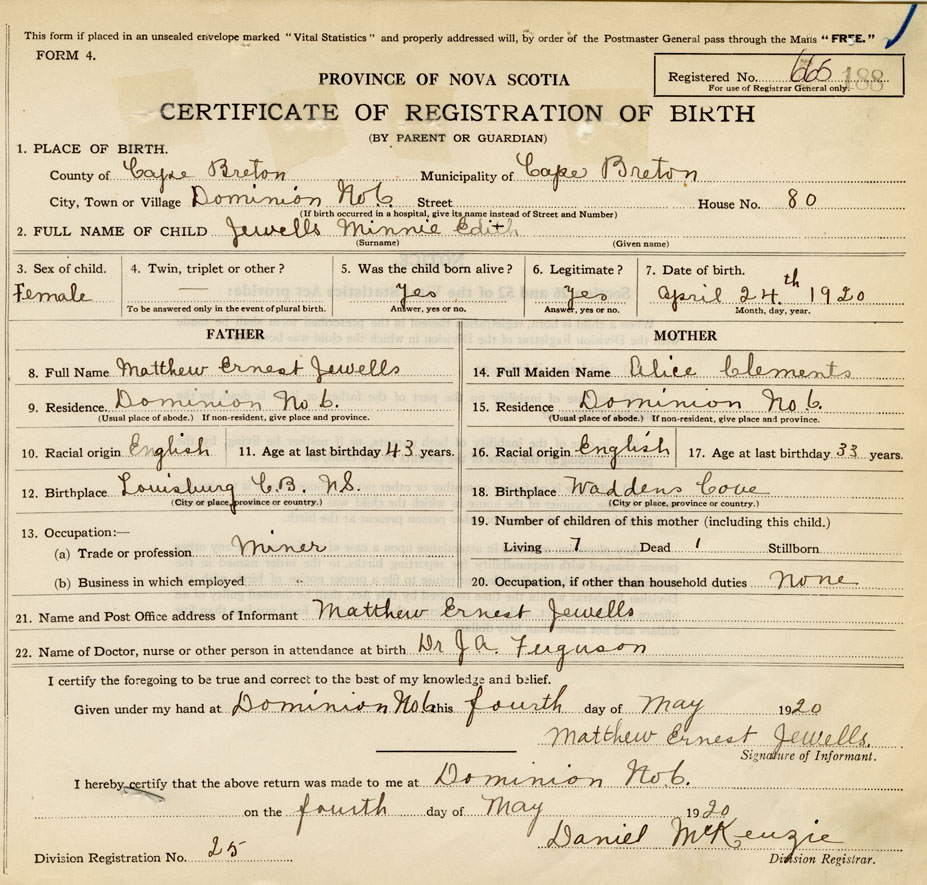 This form if placed in an unsealed envelope marked "Vital Statistics" and properly addressed will, by order of the Postmaster General pass through the Mails "FREE."
FORM 4.
Registered No. 665 188
For use of Registrar General only.
PROVINCE OF NOVA SCOTIA
CERTIFICATE OF REGISTRATION OF BIRTH
(BY PARENT OR GUARDIAN)
1. PLACE OF BIRTH.
County of Cape Breton Municipality of Cape Breton
City, Town or Village Dominion No 6 Street House No. 80
(If birth occurred in a hospital, give its name instead of Street and Number)
2. FULL NAME OF CHILD Jewells Minnie Edith
(Surname) (Given name)
3. Sex of child. 4. Twin, triplet or other? 5. Was the child born alive? 6. Legitimate? 7. Date of birth.
Female — yes yes April 24th 1920
To be answered only in the event of plural birth. Answer, yes or no. Answer, yes or no. Month, day, year.
FATHER MOTHER
8. Full Name Matthew Ernest Jewells 14. Full Maiden Name Alice Clements
9. Residence. Dominion No 6. 15. Residence Dominion No 6.
(Usual place of abode.) If non-resident, give place and province. (Usual place of abode.) If non-resident, give place and province.
10. Racial origin English 11. Age at last birthday 43 years. 16. Racial origin English 17. Age at last birthday 33 years.
12. Birthplace Louisburg C.B. N.S. 18. Birthplace Waddens Cove
(City or place, province or country.) (City or place, province or country.)
13. Occupation:— 19. Number of children of this mother (including this child.)
(a) Trade or profession Miner Living 7 Dead 1 Stillborn
(b) Business in which employed 20. Occupation, if other than household duties None
21. Name and Post Office address of Informant Matthew Ernest Jewells
22. Name of Doctor, nurse or other person in attendance at birth Dr J. A. Ferguson
I certify the foregoing to be true and correct to the best of my knowledge and belief.
Given under my hand at Dominion No 6 this fourth day of May 1920
Matthew Ernest Jewells.
Signature of Informant.
I hereby certify that the above return was made to me at Dominion No 6.
on the fourth day of May 1920
Daniel McKenzie
Division Registration No. 25 Division Registrar.